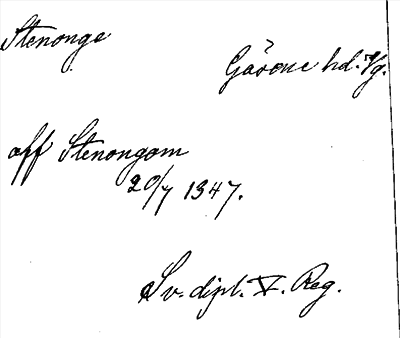 Stenonge
Gäsene hd. Vg.
aff Stenongom
20/7 1347.
Sv. dipl. V. Reg.